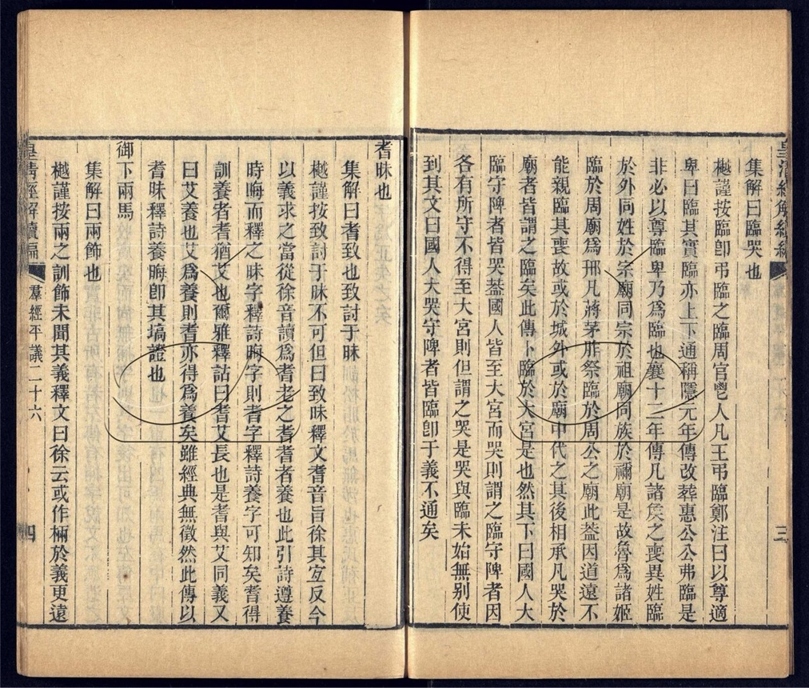 集解曰臨哭也
樾謹按臨卽弔臨之臨周官鬯人凡王弔臨鄭注曰以尊適
卑曰臨其實臨亦上下通稱隱元年傳改葬惠公公弗臨是
非必以尊臨卑乃爲臨也襄十二年傳凡諸矦之喪異姓臨
於外同姓於宗廟同宗於祖廟同族於禰廟是故魯爲諸姬
臨於周廟爲邢凡蔣茅胙祭臨於周公之廟此葢因道遠不
能親臨其喪故或於城外或於廟中代之其後相承凡哭於
廟者皆謂之臨矣此傳卜臨於大宮是也然其下曰國人大
臨守陴者皆哭葢國人皆至大宮而哭則謂之臨守陴者因
各有所守不得至大宮則但謂之哭是哭與臨未始無別使
到其文曰國人大哭守陴者皆臨卽于義不通矣
耆昧也
集解曰耆致也致討于昧
樾謹按致討于昧不可但曰致昧釋文耆音旨徐其宜反今
以義求之當從徐音讀爲耆老之耆耆者養也此引詩遵養
時晦而釋之昧字釋詩晦字則耆字釋詩養字可知矣耆得
訓養者耆猶艾也爾雅釋詁曰耆艾長也是耆與艾同義又
曰艾養也艾爲養則耆亦得爲養矣雖經典無徵然此傳以
耆昧釋詩養晦卽其塙證也
御下兩馬
集解曰兩飾也
樾謹按兩之訓飾未聞其義釋文曰徐云或作㮳於義更遠
皇清經解續編 羣經平議二十六 四